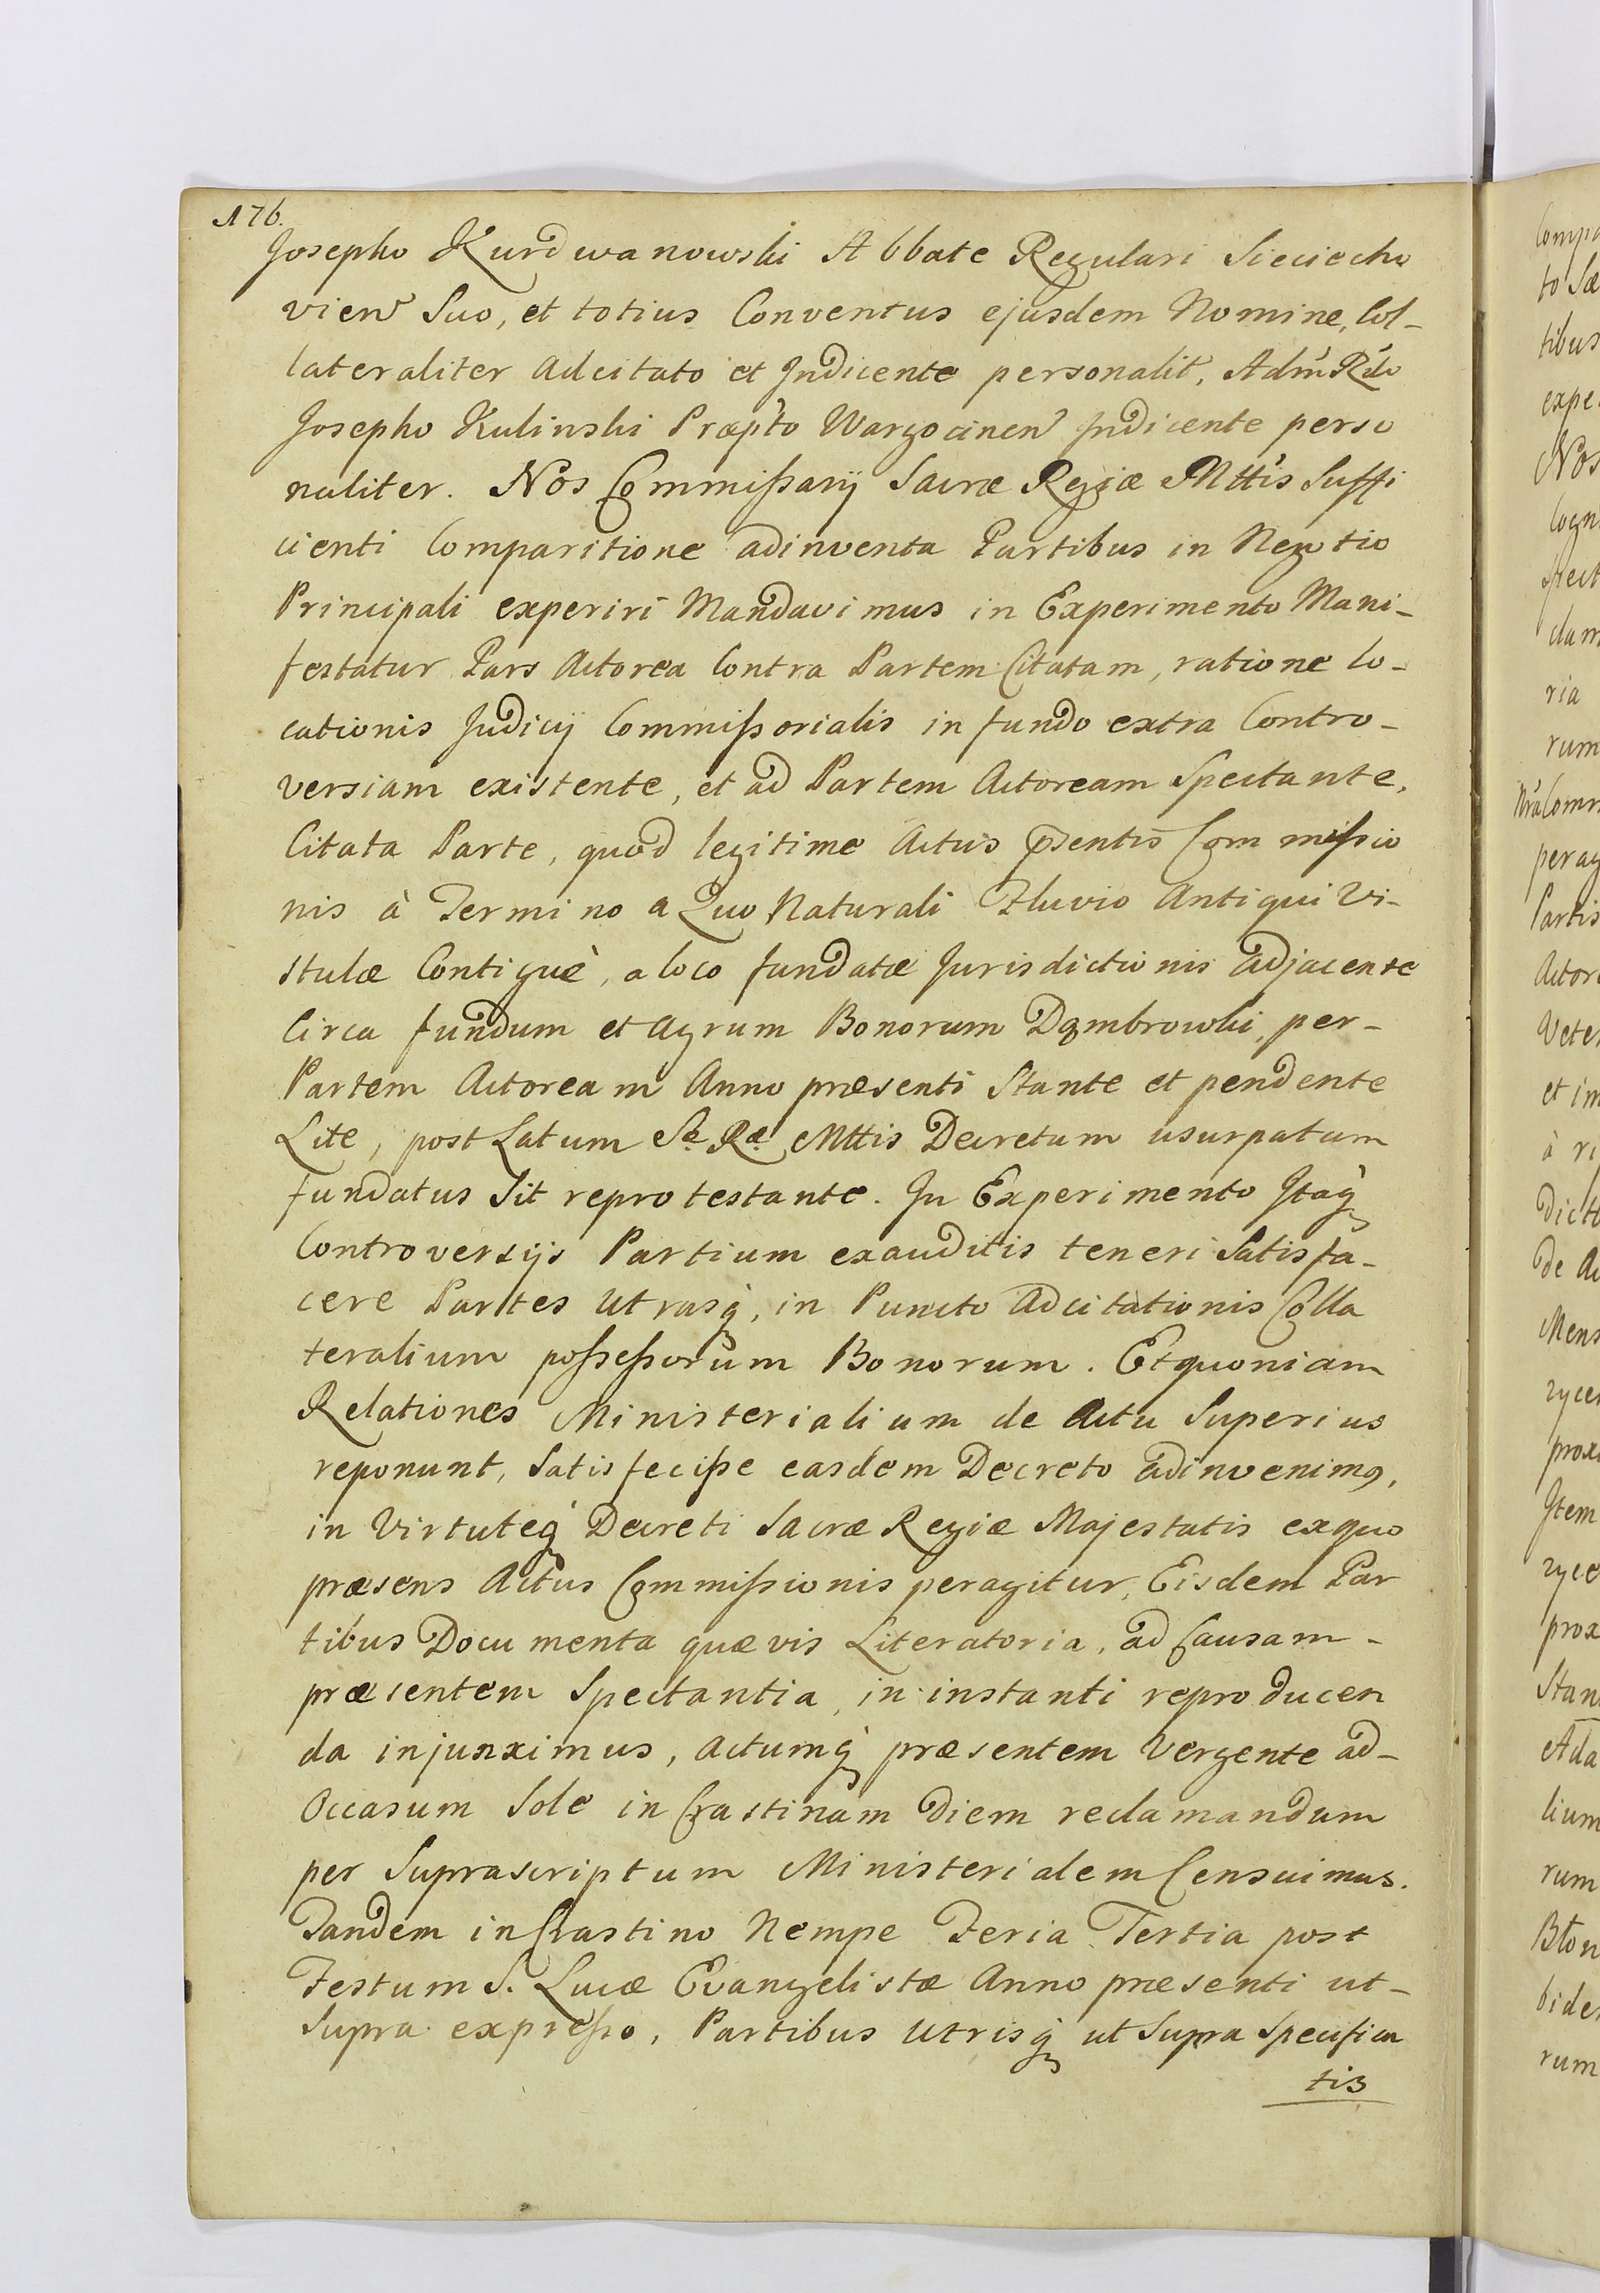 176.
Josepho Kurdwanowski Abbate Regulari Sieciecho
vien Suo, et totius Conventus ejusdem Nomine, Col-
lateraliter Adcitato et Indicente personalit, Adm Rdo
Josepho Kulinski Præpto Wargocinen Indicente perso
naliter. Nos Commißarij Sacræ Regiæ Mttis Suffi
cienti Comparitione adinventa Partibus in Negotio
Principali experiri Mandavimus in Experimento Mani-
festatur Pars Actorea Contra Partem Citatam, ratione lo-
cationis Judicij Commißorialis in fundo extra Contro-
versiam existente, et ad Partem Actoream Spectante,
Citata Parte, quod legitime Actus pntis Commißio
nis à Termino a Quo Naturali Fluvio Antiqui Vi-
stulæ Contiguè, a loco fundatæ Jurisdictionis adjacente
Circa fundum et Agrum Bonorum Dąmbrowki, per-
Partem Actoream Anno præsenti Stante et pendente
Lite, post Latum Sæ Ræ Mttis Decretum usurpatum
fundatus Sit reprotestante. In Experimento Itaq
Controversijs Partium exauditis teneri Satisfa-
cere Partes Utrasq, in Puncto Adcitationis Colla
teralium poßeßorum Bonorum. Et quoniam
Relationes Ministerialium de Actu Superius
reponunt, Satisfeciße easdem Decreto adinvenimq,
in Virtuteq Decreti Sacræ Regiæ Majestatis ex quo
præsens Actus Commißionis peragitur, Eisdem Par
tibus Documenta quævis Literatoria, ad Causam-
præsentem Spectantia, in instanti reproducen
da injunximus, Actumq præsentem Vergente ad-
Occasum Sole in Crastinam Diem reclamandum
per Suprascriptum Ministerialem Censuimus.
Tandem in Crastino Nempe Feria Tertia post
Festum S. Lucæ Evangelistæ Anno præsenti ut-
Supra expreßo, Partibus Utrisq ut Supra Specifica
tis